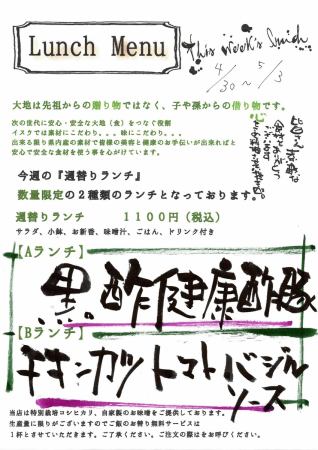 Lunch Menu
This week's Lunch
4/30 〜 5/3
大地は先祖からの贈り物ではなく、子や孫からの借り物です。
次の世代に安心・安全な大地(食)をつなぐ役割
イスクでは素材にこだわり。。。味にこだわり。。。
出来る限り県内産の素材で皆様の美容と健康のお手伝いが出来ればと
安心で安全な食材を使う事を心がけています。
今週の『週替りランチ』
数量限定の2種類のランチとなっております。
週替りランチ 1100円(税込)
サラダ、小鉢、お新香、味噌汁、ごはん、ドリンク付き
【Aランチ】
黒酢健康酢豚
【Bランチ】
チキンカツトマトバジル
ソース
当店は特別栽培コシヒカリ、自家製のお味噌をご提供しております。
生産量に限りがございますのでご飯のお替り無料サービスは
1杯とさせていただきます。ご了承ください。ご注文の際はをお呼びください。